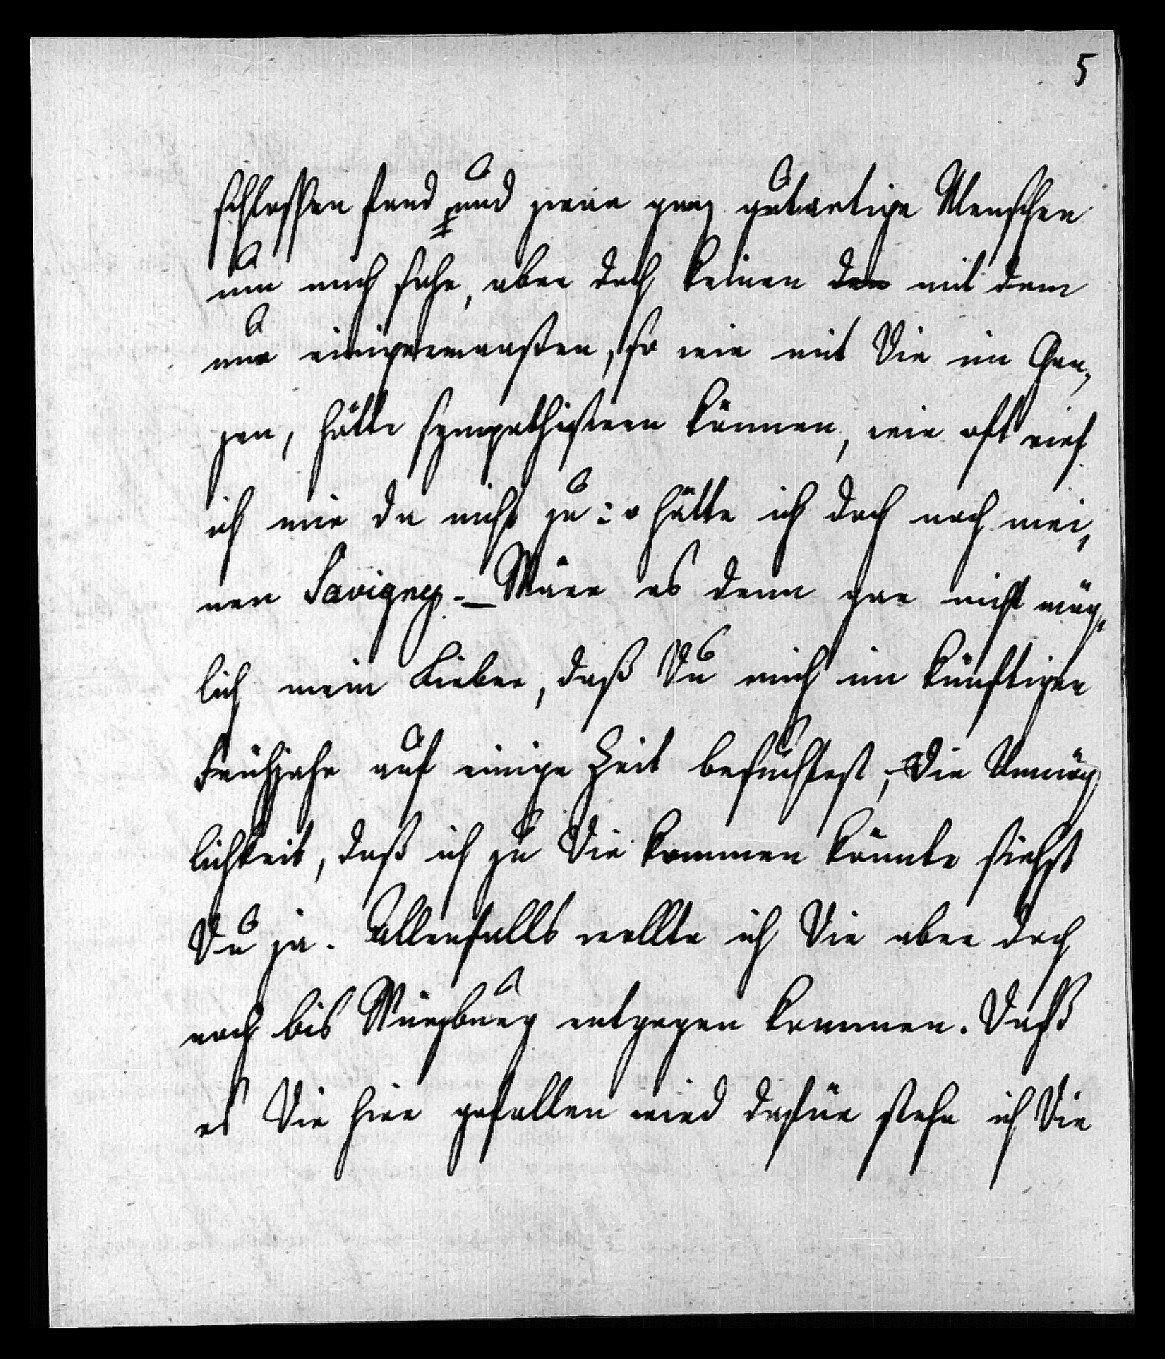 5
schlossen fand, und zwar ganz gutartige Menschen
um mich sahe, aber doch keinen den mit dem
nur einigermaaßen, so wie mit Dir im Gan„
zen, hätte sympathisiren können, wie oft rief
ich mir da nicht zu: o hätte ich doch noch mei„
nen Savigny. — Wäre es denn gar nicht mög„
lich mein Lieber, daß Du mich im künftigen
Frühjahr auf einige Zeit besuchtest, die Unmög„
lichkeit, daß ich zu Dir kommen könnte siehst
Du ja. Allenfalls wollte ich Dir aber doch
noch bis Würzburg entgegen kommen. Daß
es Dir hier gefallen wird dafür stehe ich Dir